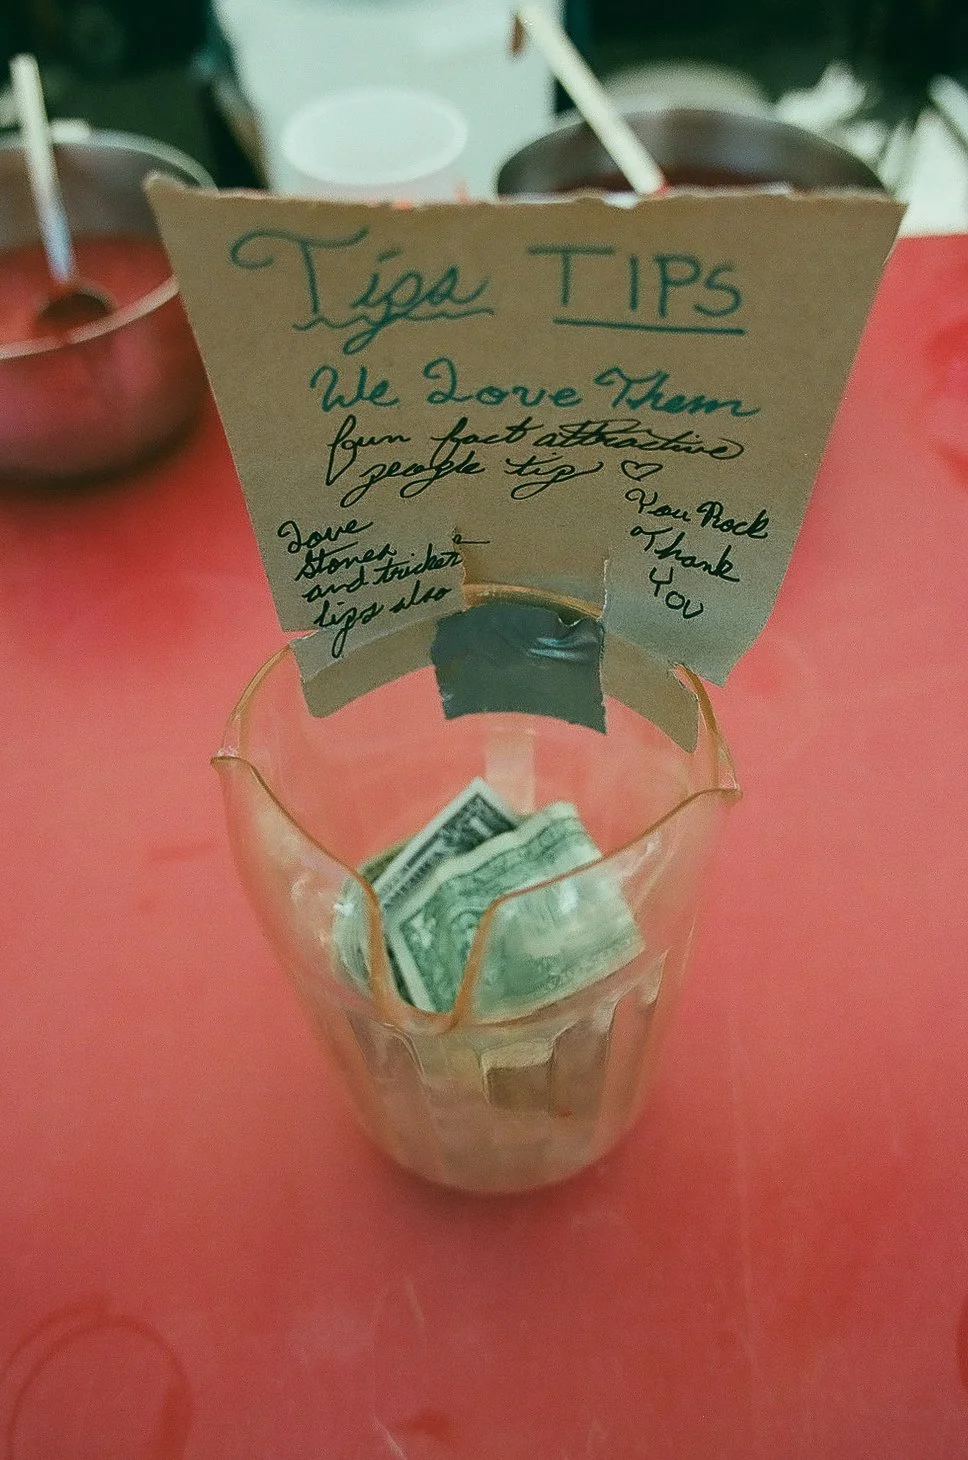 Tips TIPS
We Love Them
fun fact attractive
people tip ♡
Love
Stones
and tricker
tips also
You Rock
Thank
You